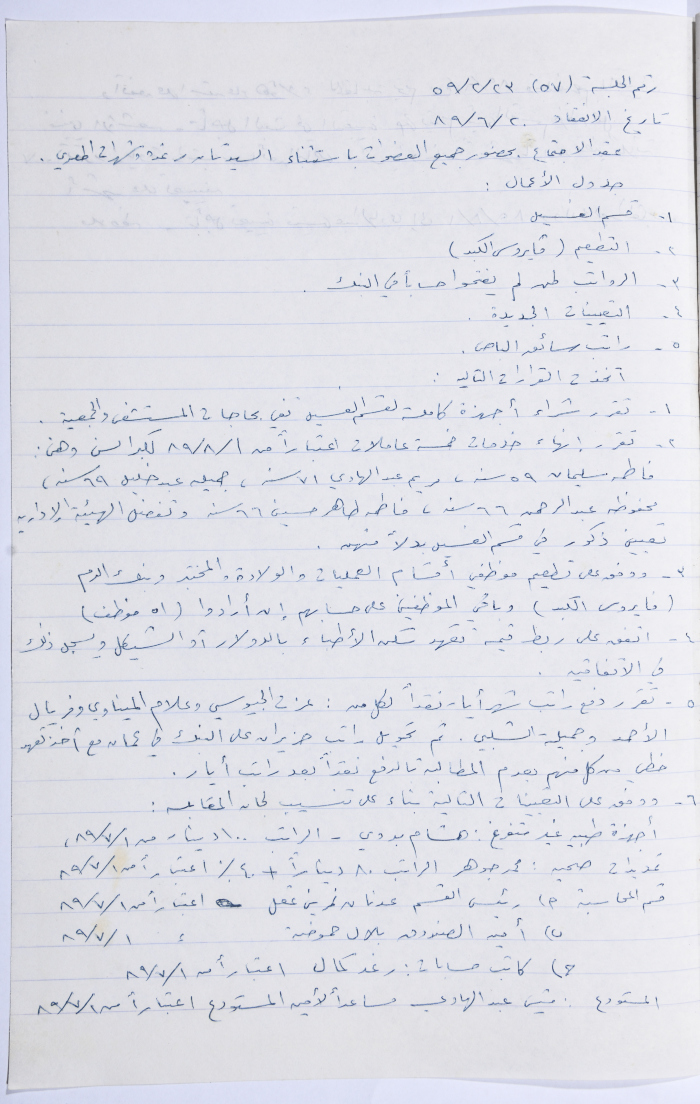 رقم الجلسة (٥٧) ٥٩/٢/٢٣
تاريخ الانعقاد ٨٩/٦/٢٠
عقد الاجتماع بحضور جميع العضوات باستثناء السيدتان رغدة وشهرات المصري .
جدول الأعمال :
١- قسم الغسيل
٢- التطعيم (فايروس الكبد)
٣- الرواتب لمن لم يفتحوا حسابا في البنك .
٤- التعيينات الجديدة .
٥- راتب سائق الباص .
اتخذت القرارات التالية :
١- تقرر شراء أجهزة كاملة لقسم الغسيل تفي بحاجات المستشفى والجمعية .
٢- تقرر إنهاء خدمات خمسة عاملات اعتباراً من ٨٩/٨/١ لكبر السن وهن :
فاطمة سليمان ٥٩ سنة ، مريم عبد الهادي ٧١ سنة ، جميلة عبد خليل ٦٩ سنة ،
محفوظة عبد الرحمن ٦٦ سنة ، فاطمة طاهر حسين ٦٦ سنة وتفضل الهيئة الإدارية
تعيين ذكور في قسم الغسيل بدلاً منهن .
٣- ووفق على تطعيم موظفي أقسام العمليات والولادة والمختبر وبنك الدم
(فايروس الكبد) وباقي الموظفين على حسابهم إن أرادوا (٥١ موظف)
٤- اتفق على ربط قيمة تعهد سكن الأطباء بالدولار أو الشيكل ويسجل ذلك
في الاتفاقية .
٥- تقرر دفع راتب شهر أيار نقداً لكل من : عزت الجيوسي وعلام الميناوي وفريال
الأحمد وجميلة الشلبي . تم تحويل راتب حزيران على البنك في عمان مع أخذ تعهد
خطي من كل منهم بعدم المطالبة بالدفع نقداً بعد راتب أيار .
٦- ووفق على التعيينات التالية بناء على تنسيب لجان المقابلة :
أجهزة طبية غير متفرغ : هشام بدوي - الراتب ١٠٠ دينار من ٨٩/٧/١ ،
تمديدات صحية : محمد جوهر الراتب ٨٠ ديناراً + ٤٠٪ اعتباراً من ٨٩/٧/١
قسم المحاسبة أ) رئيس القسم عدنان نمر بني عقل اعتباراً من ٨٩/٧/١
ب) أمين الصندوق بلال حموضة ٨٩/٧/١
ج) كاتب حسابات : رغد كمال اعتباراً من ٨٩/٧/١
المستودع : قيس عبد الهادي مساعداً لأمين المستودع اعتباراً من ٨٩/٧/١